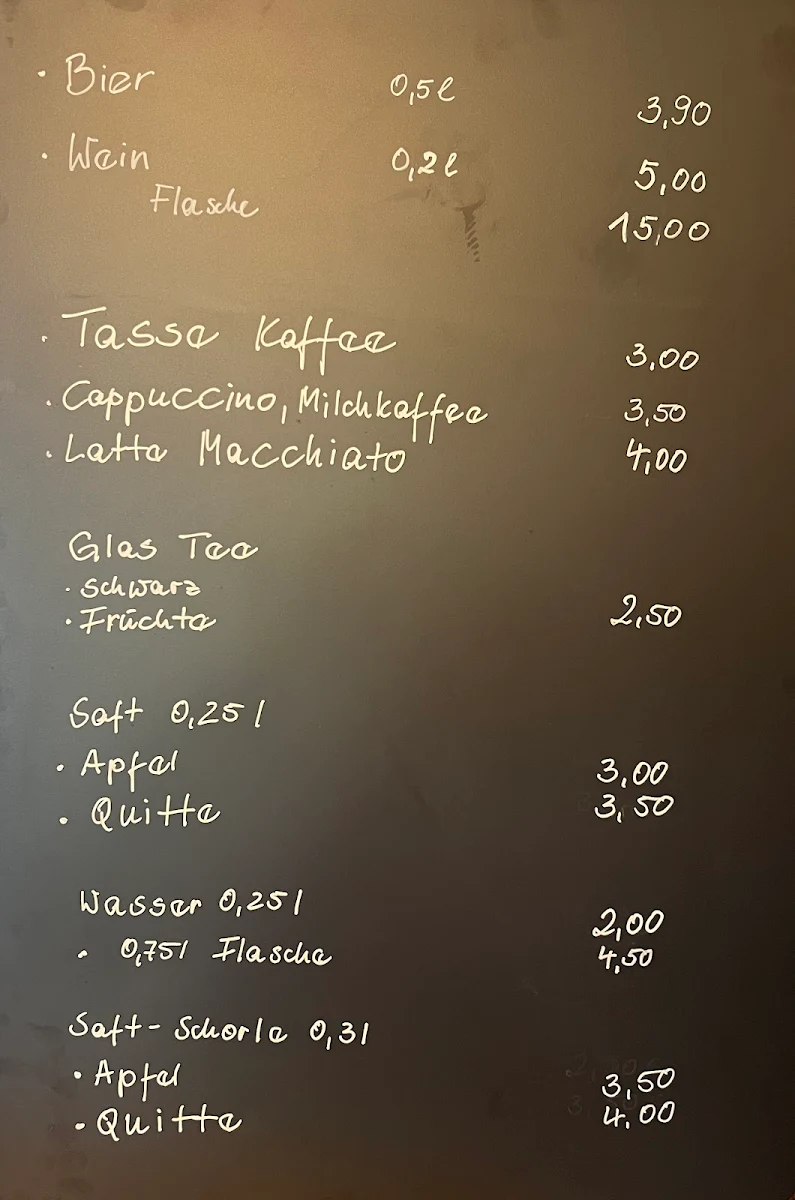 · Bier 0,5l 3,90
· Wein 0,2l 5,00
Flasche 15,00
· Tasse Kaffee 3,00
· Cappuccino, Milchkaffee 3,50
· Latte Macchiato 4,00
Glas Tee
· Schwarz
· Früchte 2,50
Saft 0,25l
· Apfel 3,00
· Quitte 3,50
Wasser 0,25l 2,00
· 0,75l Flasche 4,50
Saft-Schorle 0,3l
· Apfel 3,50
· Quitte 4.00